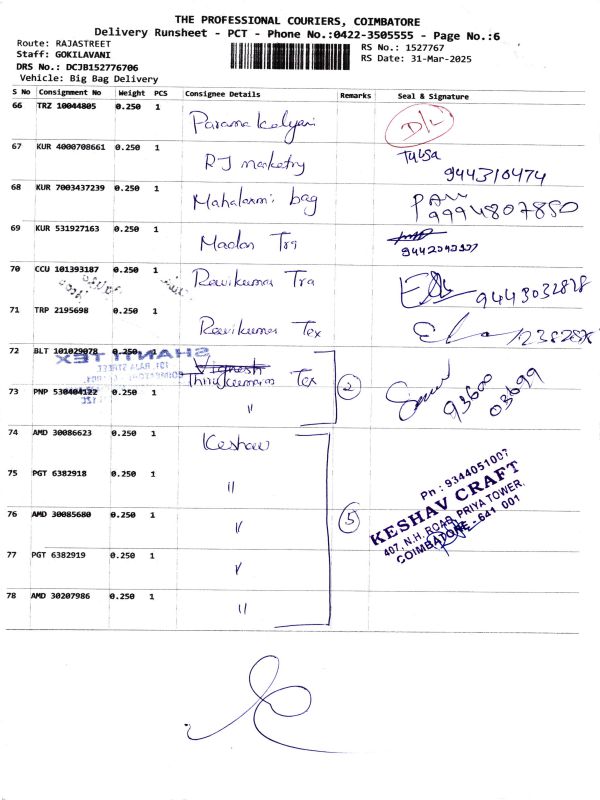 THE PROFESSIONAL COURIERS, COIMBATORE
Delivery Runsheet - PCT - Phone No.:0422-3505555 - Page No.:6
Route: RAJASTREET
Staff: GOKILAVANI
DRS No.: DCJB152776706
Vehicle: Big Bag Delivery
RS No.: 1527767
RS Date: 31-Mar-2025
S No Consignment No Weight PCS Consignee Details Remarks Seal & Signature
66 TRZ 10044805 0.250 1 Parama Kalyani D/L
67 KUR 4000708661 0.250 1 RJ marketry Tulsa
944310474
68 KUR 7003437239 0.250 1 Mahalaxmi bag
9994807850
69 KUR 531927163 0.250 1 Madan Tra
70 CCU 101393187 0.250 1 Ravikumar Tra 9443032828
71 TRP 2195698 0.250 1 Ravikumar Tex
72 BLT 101029078 0.250 1 Vignesh
Thirukumaran Tex 2
SHANTHI TEX
73 PNP 530404122 0.250 1 " 93600
03699
74 AMD 30086623 0.250 1 Keshav
75 PGT 6382918 0.250 1 "
76 AMD 30085680 0.250 1 " 5
77 PGT 6382919 0.250 1 "
78 AMD 30207986 0.250 1 "
Pn : 9344051007
KESHAV CRAFT
407, N.H. ROAD, PRIYA TOWER,
COIMBATORE - 641 001